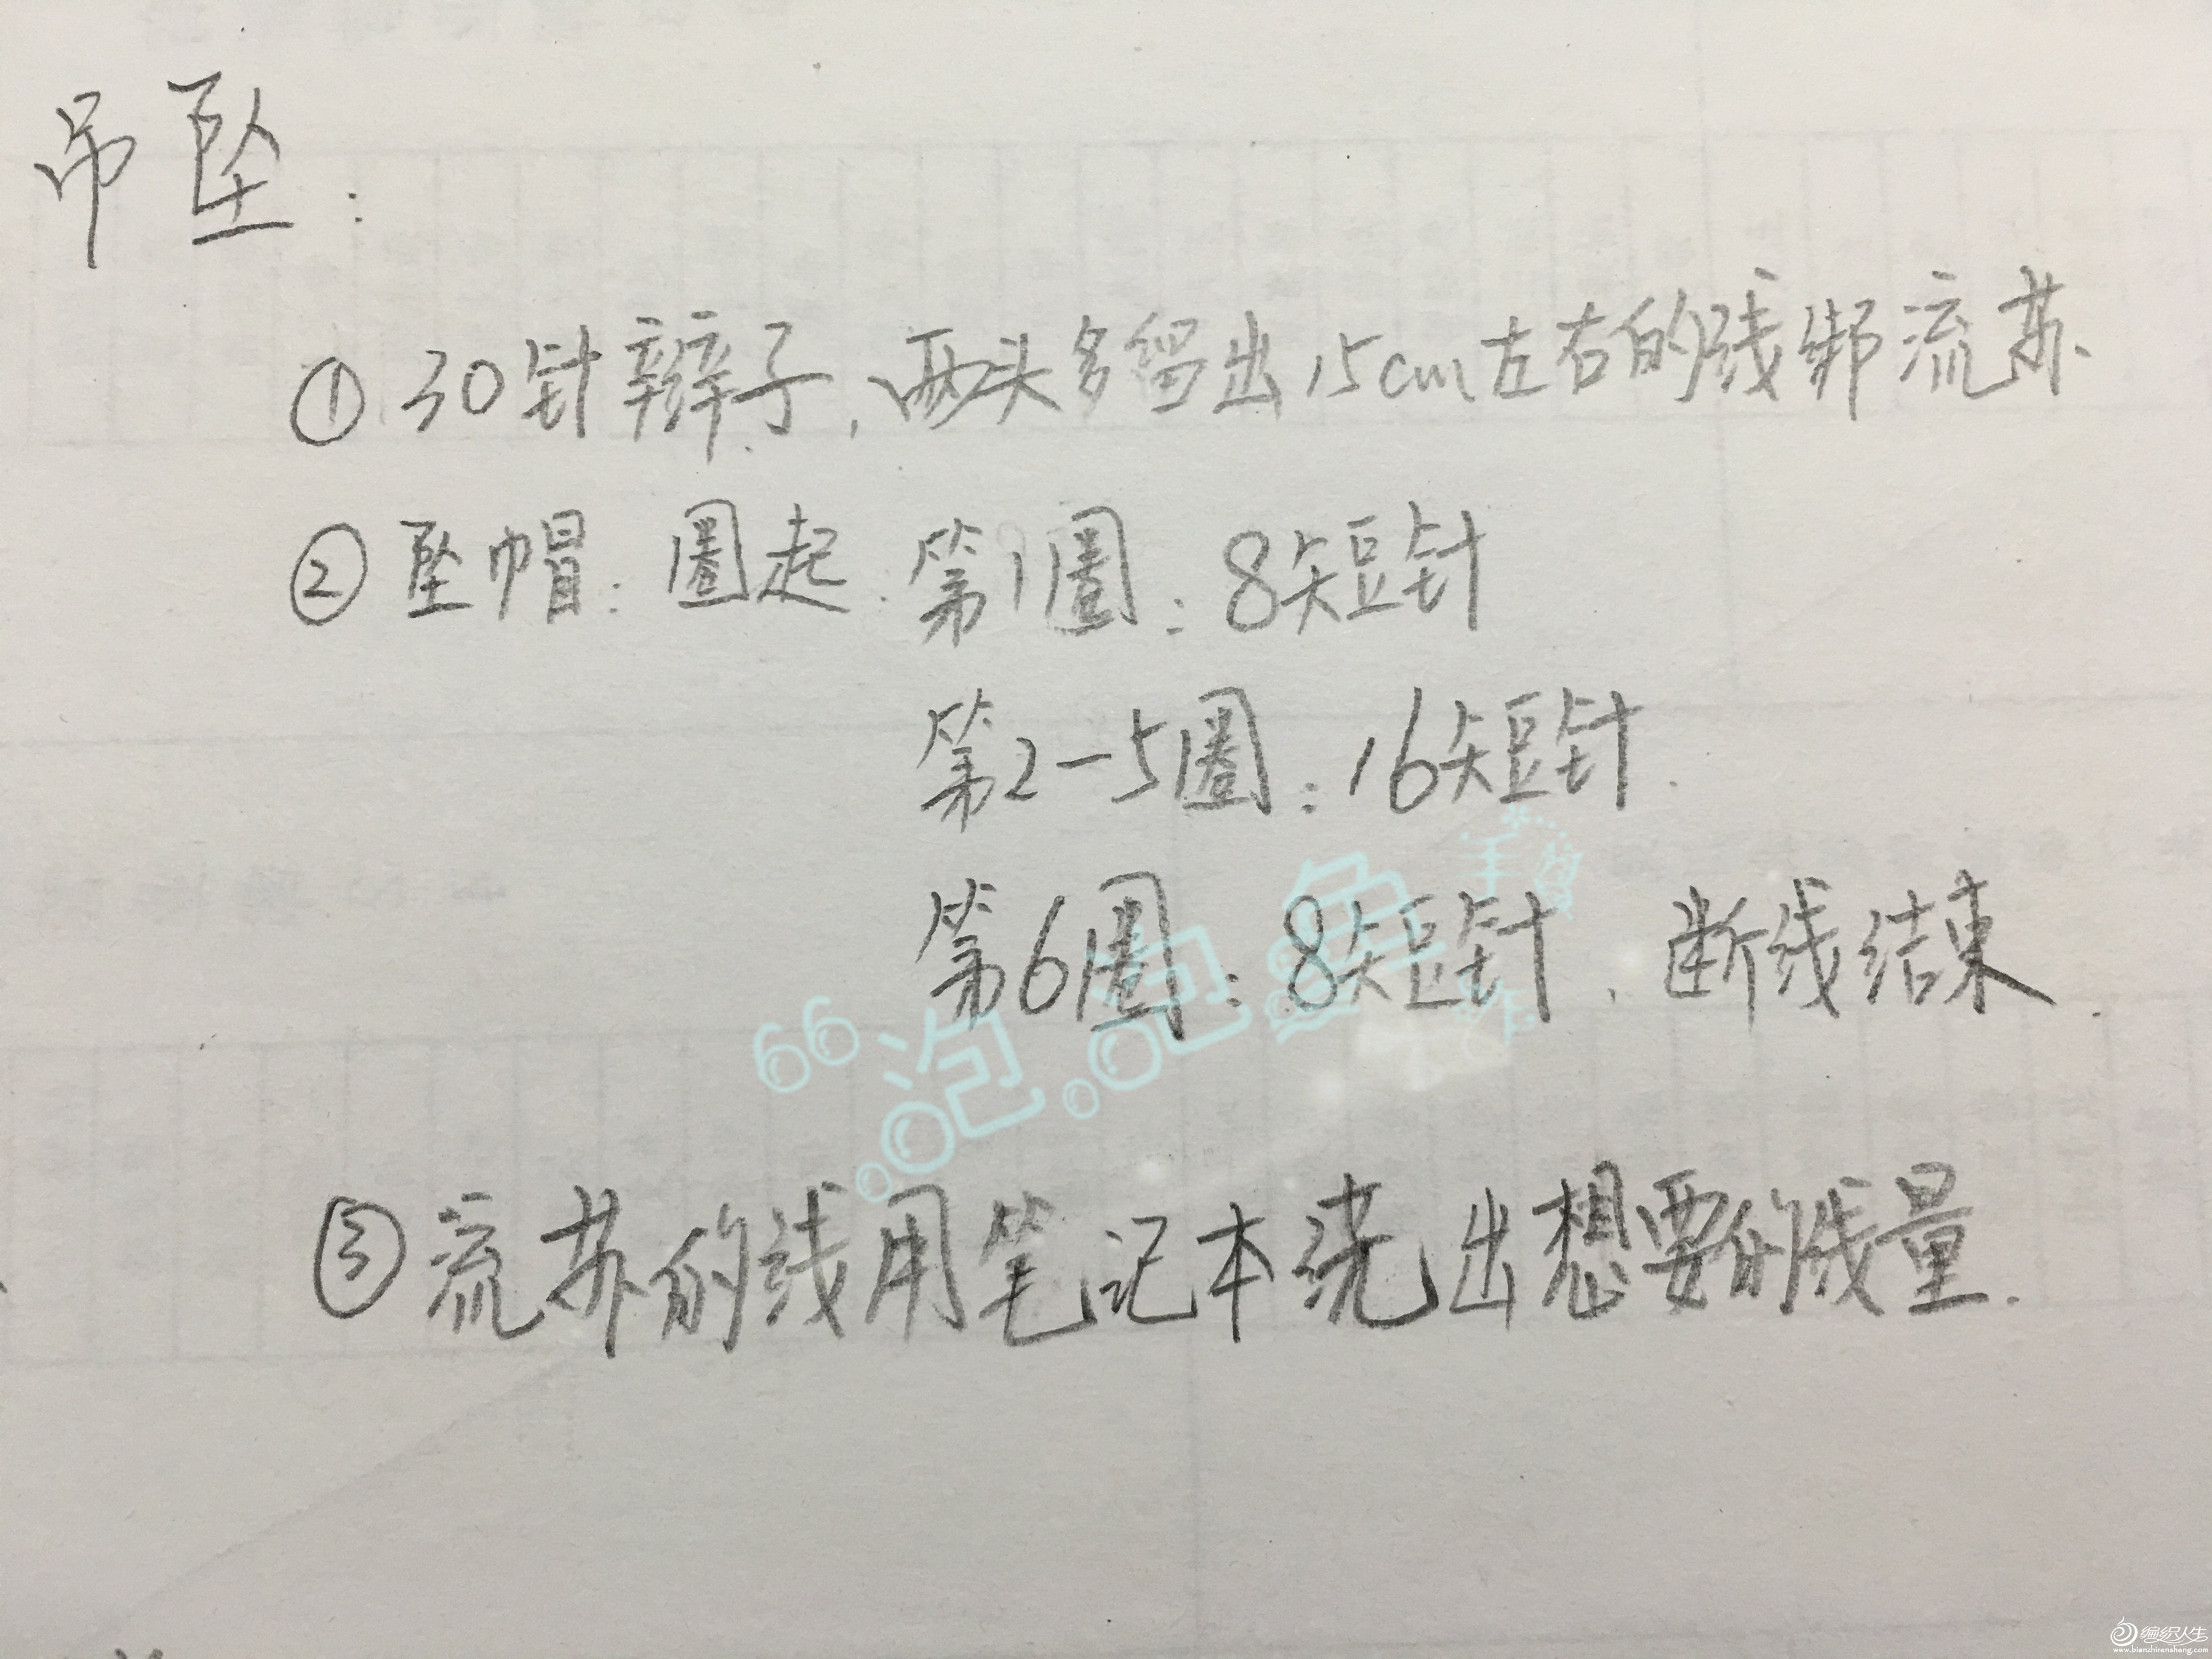 吊坠：
① 30针辫子，两头多留出15cm左右的线绑流苏.
② 坠帽：圈起. 第1圈：8短针
第2-5圈：16短针.
第6圈：8短针. 断线结束.
③ 流苏的线用笔记本绕出想要的线量.
66泡泡鱼手作
编织人生
www.bianzhirensheng.com